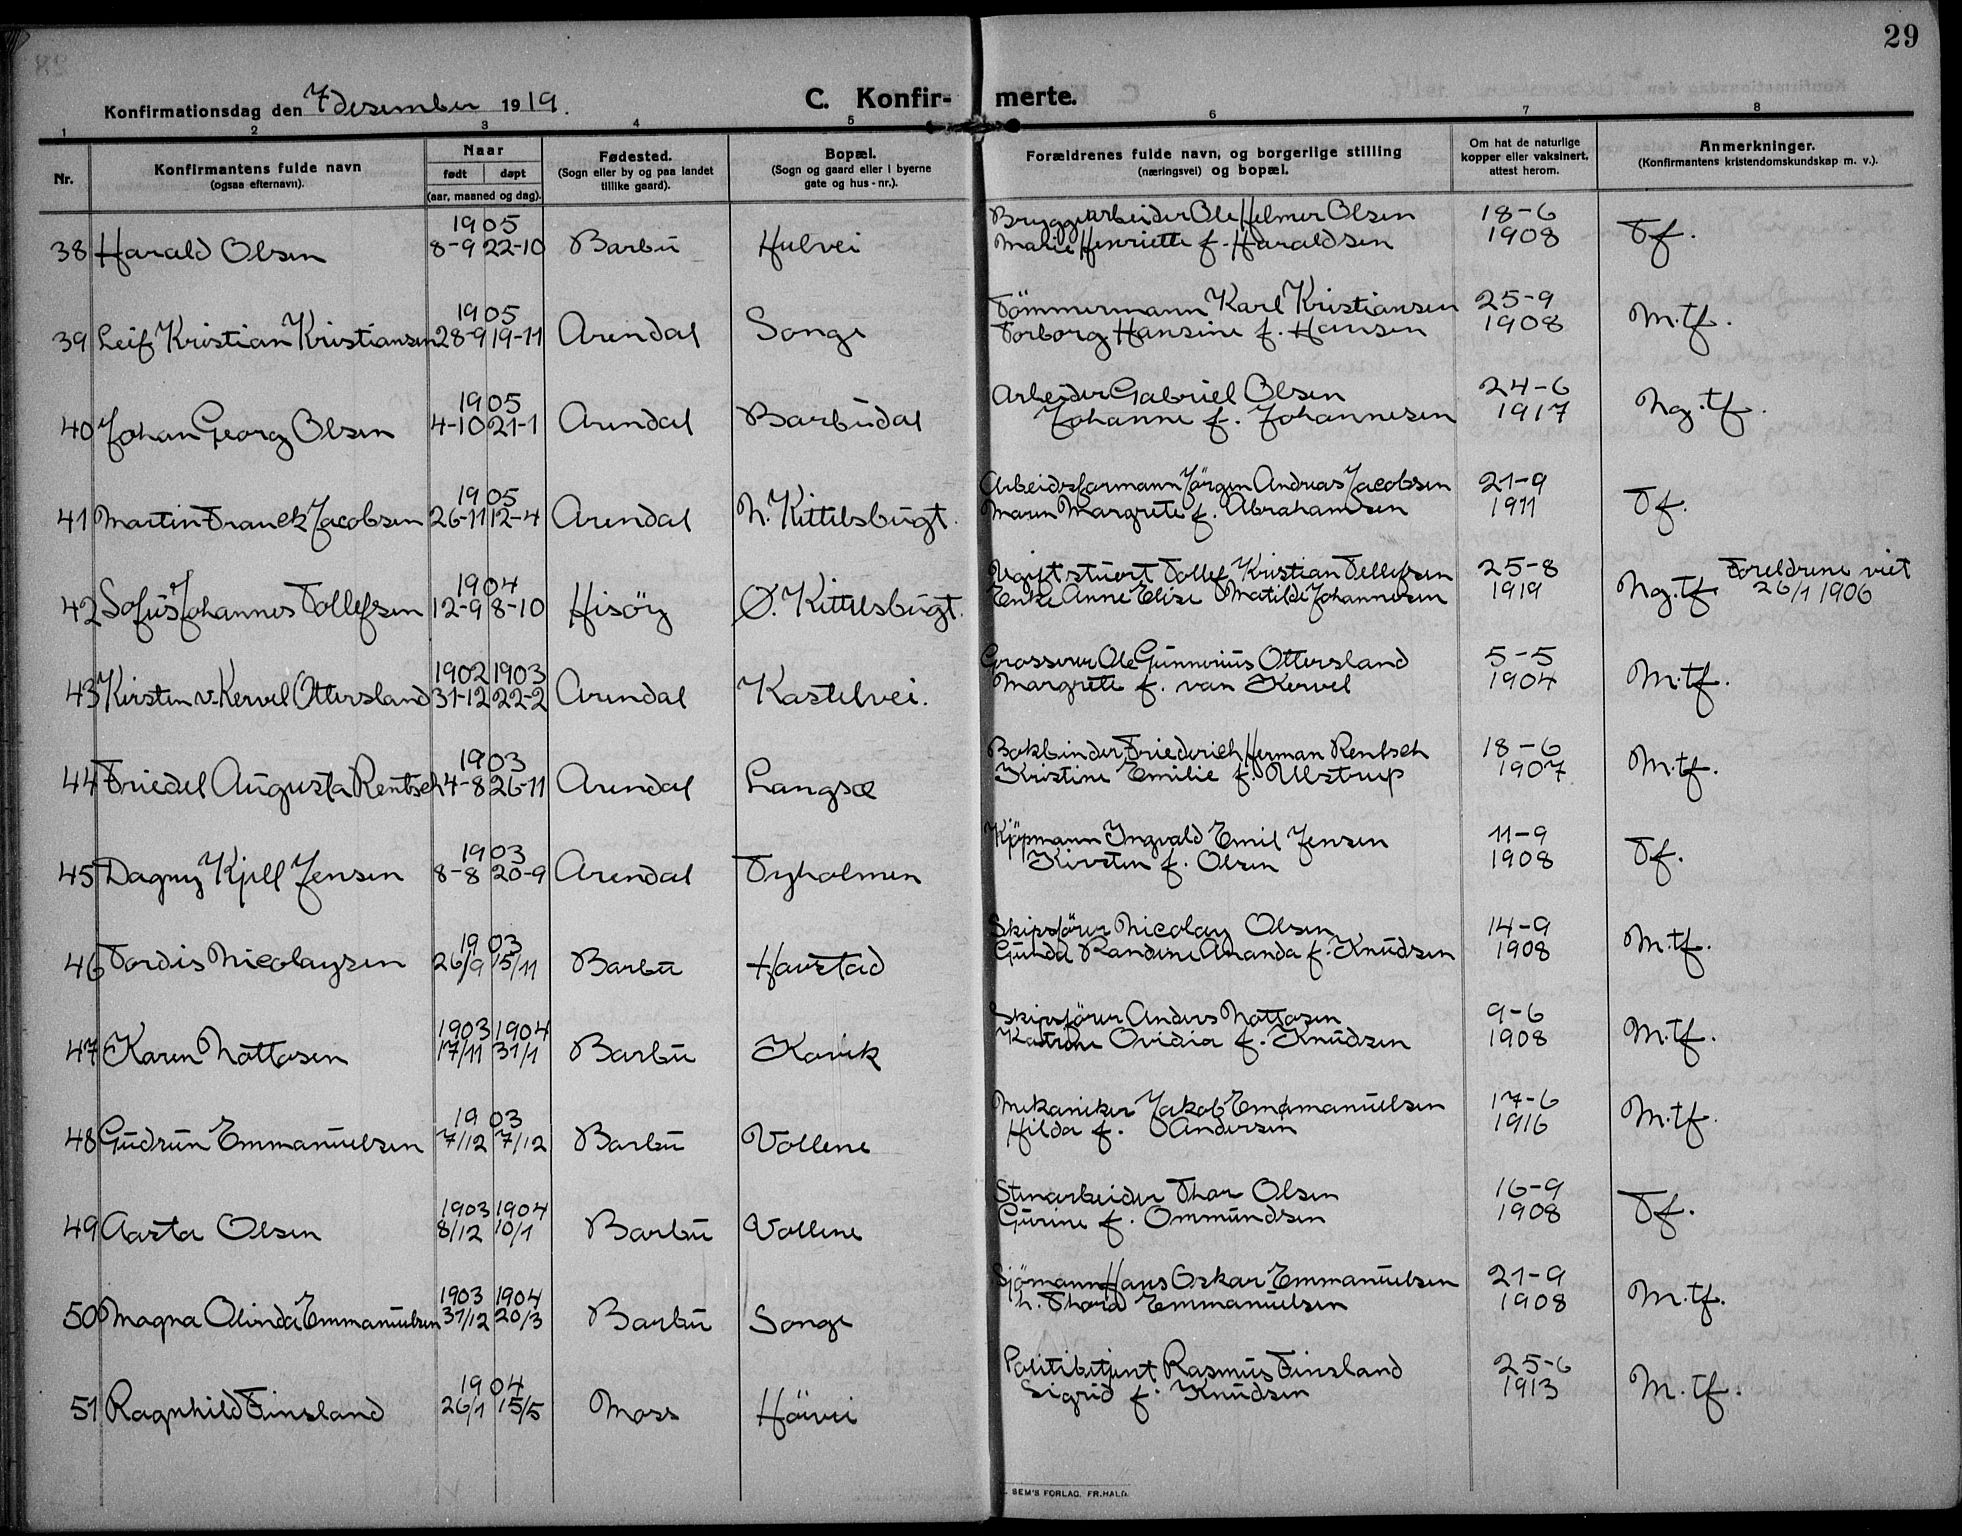 29
Konfirmationsdag den 7 desember 1919.
C. Konfir- merte.
1 2 3 4 5 6 7 8
Nr.
Konfirmantens fulde navn
(ogsaa efternavn).
Naar
født døpt
(aar, maaned og dag).
Fødested.
(Sogn eller by og paa landet
tillike gaard).
Bopæl.
(Sogn og gaard eller i byerne
gate og hus-nr.).
Forældrenes fulde navn, og borgerlige stilling
(næringsvei) og bopæl.
Om hat de naturlige
kopper eller vaksinert,
attest herom.
Anmerkninger.
(Konfirmantens kristendomskundskap m. v.).
1905 Bryggearbeider Ole Helmer Olsen 18-6
38 Harald Olsen 8-9 22-10 Barbu Hulvei Marie Henriette f. Haraldsen 1908 Tf.
1905 Tömmermann Karl Kristiansen 25-9
39 Leif Kristian Kristiansen 28-9 19-11 Arendal Songe Torborg Hansine f. Hansen 1908 M.tf.
1905 Arbeider Gabriel Olsen 24-6
40 Johan Georg Olsen 4-10 21-1 Arendal Barbudal Johanne f. Johannesen 1917 Ng.tf.
1905 Arbeidsformann Jörgen Andreas Jacobsen 21-9
41 Martin Franck Jacobsen 26-11 12-4 Arendal N. Kittilsbugt. Maren Margrete f. Abrahamsen 1911 Tf.
1904 Ugift stuert Tollef Kristian Tellefsen 25-8 Foreldrene viet
42 Sofus Johannes Tollefsen 12-9 8-10 Hisöy Ø. Kittilsbugt. Enke Anne Elise Matilde Johannesen 1919 Ng.tf. 26/1 1906
1902 1903 Grosserer Ole Gunnerius Ottersland 5-5
43 Kirsten v. Kervel Ottersland 31-12 22-2 Arendal Kastelvei. Margrete f. van Kervel 1904 M.tf.
1903 Bokbinder Friederich Herman Rentsch 18-6
44 Friedel Augusta Rentsch 4-8 26-11 Arendal Langsæ Kristine Emilie f. Ulstrup 1907 M.tf.
1903 Kjöpmann Ingvald Emil Jensen 11-9
45 Dagny Kjell Jensen 8-8 20-9 Arendal Tyholmen Kirsten f. Olsen 1908 Tf.
1903 Skipsförer Nicolay Olsen 14-9
46 Tordis Nicolaysen 26/9 15/11 Barbu Havstad Gunda Randine Amanda f. Knudsen 1908 M.tf.
1903 1904 Skipsförer Anders Nottosen 9-6
47 Karen Nottosen 17/11 31/1 Barbu Kovik Katrine Ovidia f. Knudsen 1908 M.tf.
1903 Mekaniker Jakob Emmanuelsen 17-6
48 Gudrun Emmanuelsen 7/12 7/12 Barbu Vollene Hilda f. Andersen 1916 M.tf.
1903 1904 Stenarbeider Thor Olsen 16-9
49 Aasta Olsen 8/12 10/1 Barbu Vollene Gurine f. Ommundsen 1908 Tf.
1903 1904 Sjömann Hans Oskar Emmanuelsen 21-9
50 Magna Olinda Emmanuelsen 31/12 20/3 Barbu Songe h. Thora Emmanuelsen 1908 M.tf.
1904 Politibetjent Rasmus Finsland 25-6
51 Ragnhild Finsland 26/1 15/5 Moss Höivei Sigrid f. Knudsen 1913 M.tf.
SEM'S FORLAG, FR.HALD.